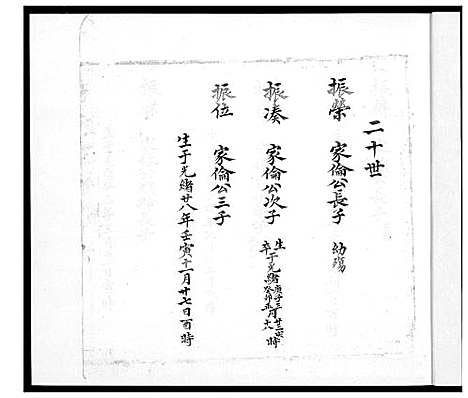 二十世
振榮 家倫公長子 幼殤
振湊 家倫公次子 生卒于光緒庚子三月廿三 癸卯 月 時
振位 家倫公三子
生于光緒廿八年壬寅十一月廿七日酉時